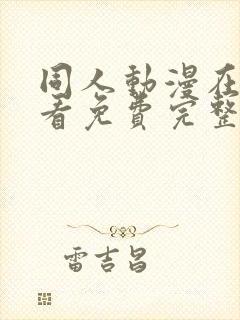 同人動漫在
看免費完整
雷吉昌